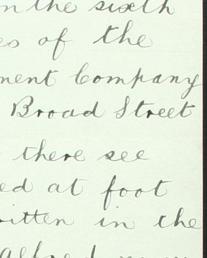 on the sixth
es of the
ment Company
Broad Street
there see
ed at foot
ritten in the